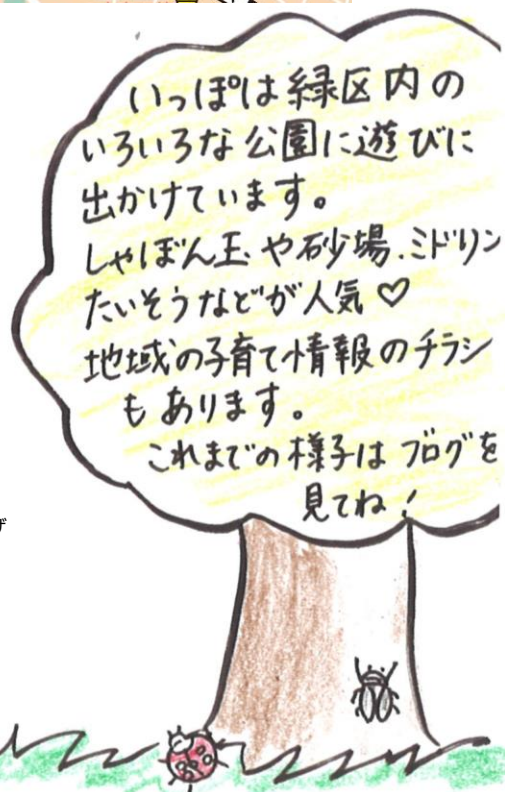 いっぽは緑区内の
いろいろな公園に遊びに
出かけています。
しゃぼん玉や砂場、ミドリン
たいそうなどが人気♡
地域の子育て情報のチラシ
もあります。
これまでの様子はブログを
見てね!
ず